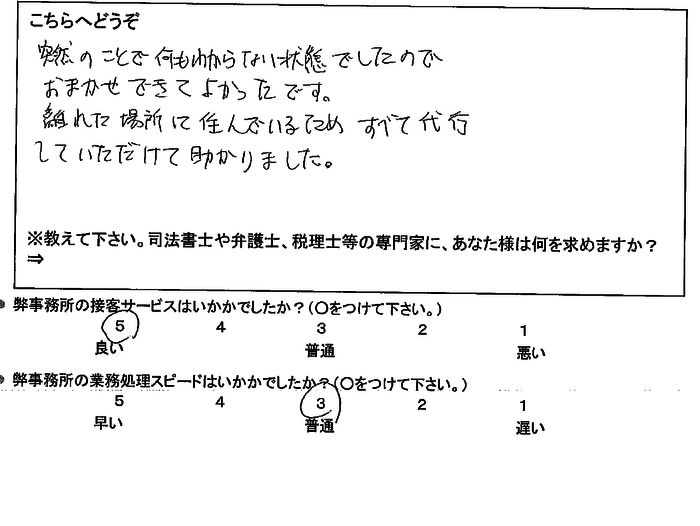 こちらへどうぞ
突然のことで何もわからない状態でしたので
おまかせできてよかったです。
離れた場所に住んでいるためすべて代行
していただけて助かりました。
※教えて下さい。司法書士や弁護士、税理士等の専門家に、あなた様は何を求めますか？
⇒
● 弊事務所の接客サービスはいかかでしたか？（〇をつけて下さい。）
5 4 3 2 1
良い 普通 悪い
● 弊事務所の業務処理スピードはいかかでしたか？（〇をつけて下さい。）
5 4 3 2 1
早い 普通 遅い